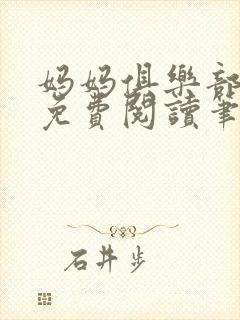 媽媽俱樂部
免費閱讀筆
石井步